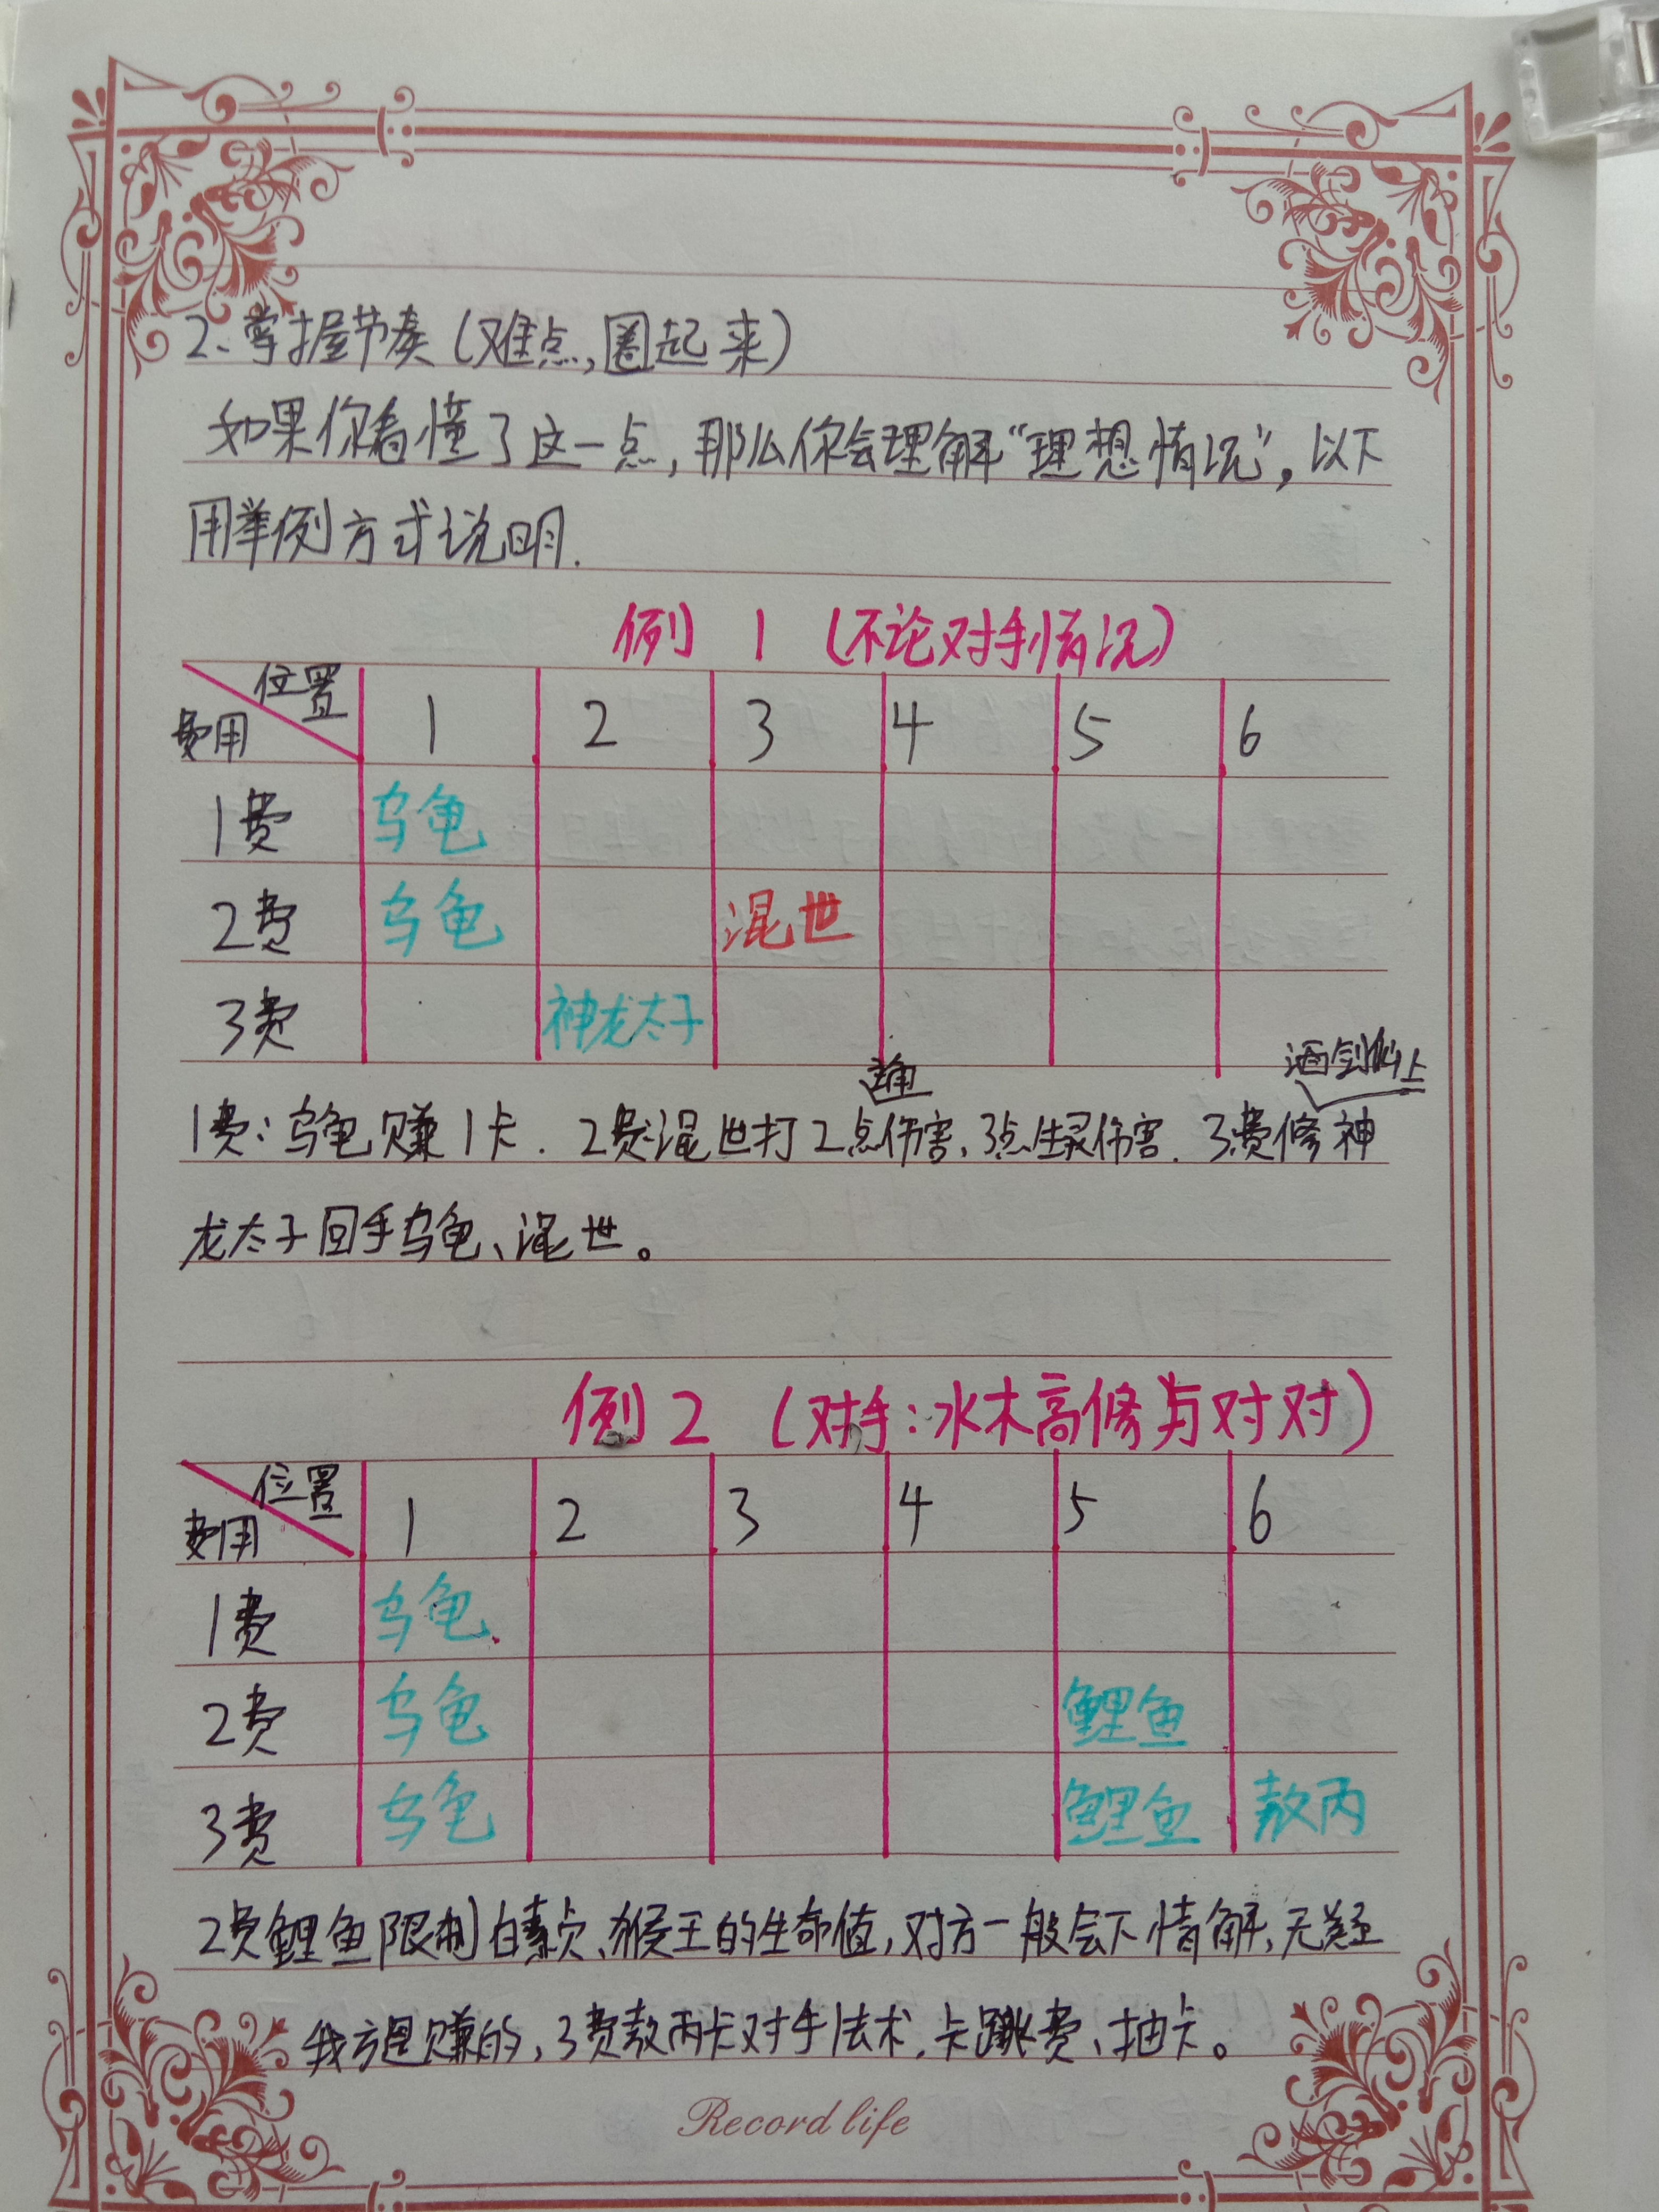 2、掌握节奏(难点,圈起来)
如果你看懂了这一点,那么你会理解“理想情况”,以下
用举例方式说明.
例 1 (不论对手情况)
位置
费用 1 2 3 4 5 6
1费 乌龟
2费 乌龟 混世
3费 神龙太子
普通
酒剑仙上
1费:乌龟赚1卡. 2费:混世打2点伤害,3点生灵伤害. 3费修神
龙太子回手乌龟、混世。
例2 (对手:水木高修与对对)
位置
费用 1 2 3 4 5 6
1费 乌龟
2费 乌龟 鲤鱼
3费 乌龟 鲤鱼 敖丙
2费鲤鱼限制白素贞、猴王的生命值,对方一般会下情解,无疑
我方是赚的,3费敖丙卡对手法术,卡跳费、抽卡。
Record life